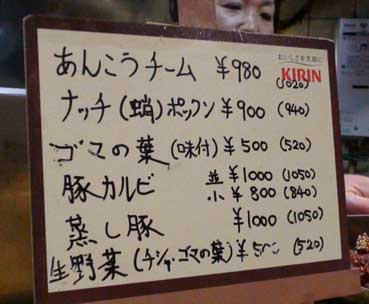 おいしさを笑顔に
KIRIN
あんこうチーム ¥980 (1020)
ナッチ(蛸)ポックン ¥900 (940)
ゴマの葉(味付) ¥500 (520)
豚カルビ 並 ¥1000 (1050)
小 ¥800 (840)
蒸し豚 ¥1000 (1050)
生野菜(チシャ・ゴマの葉) ¥500 (520)